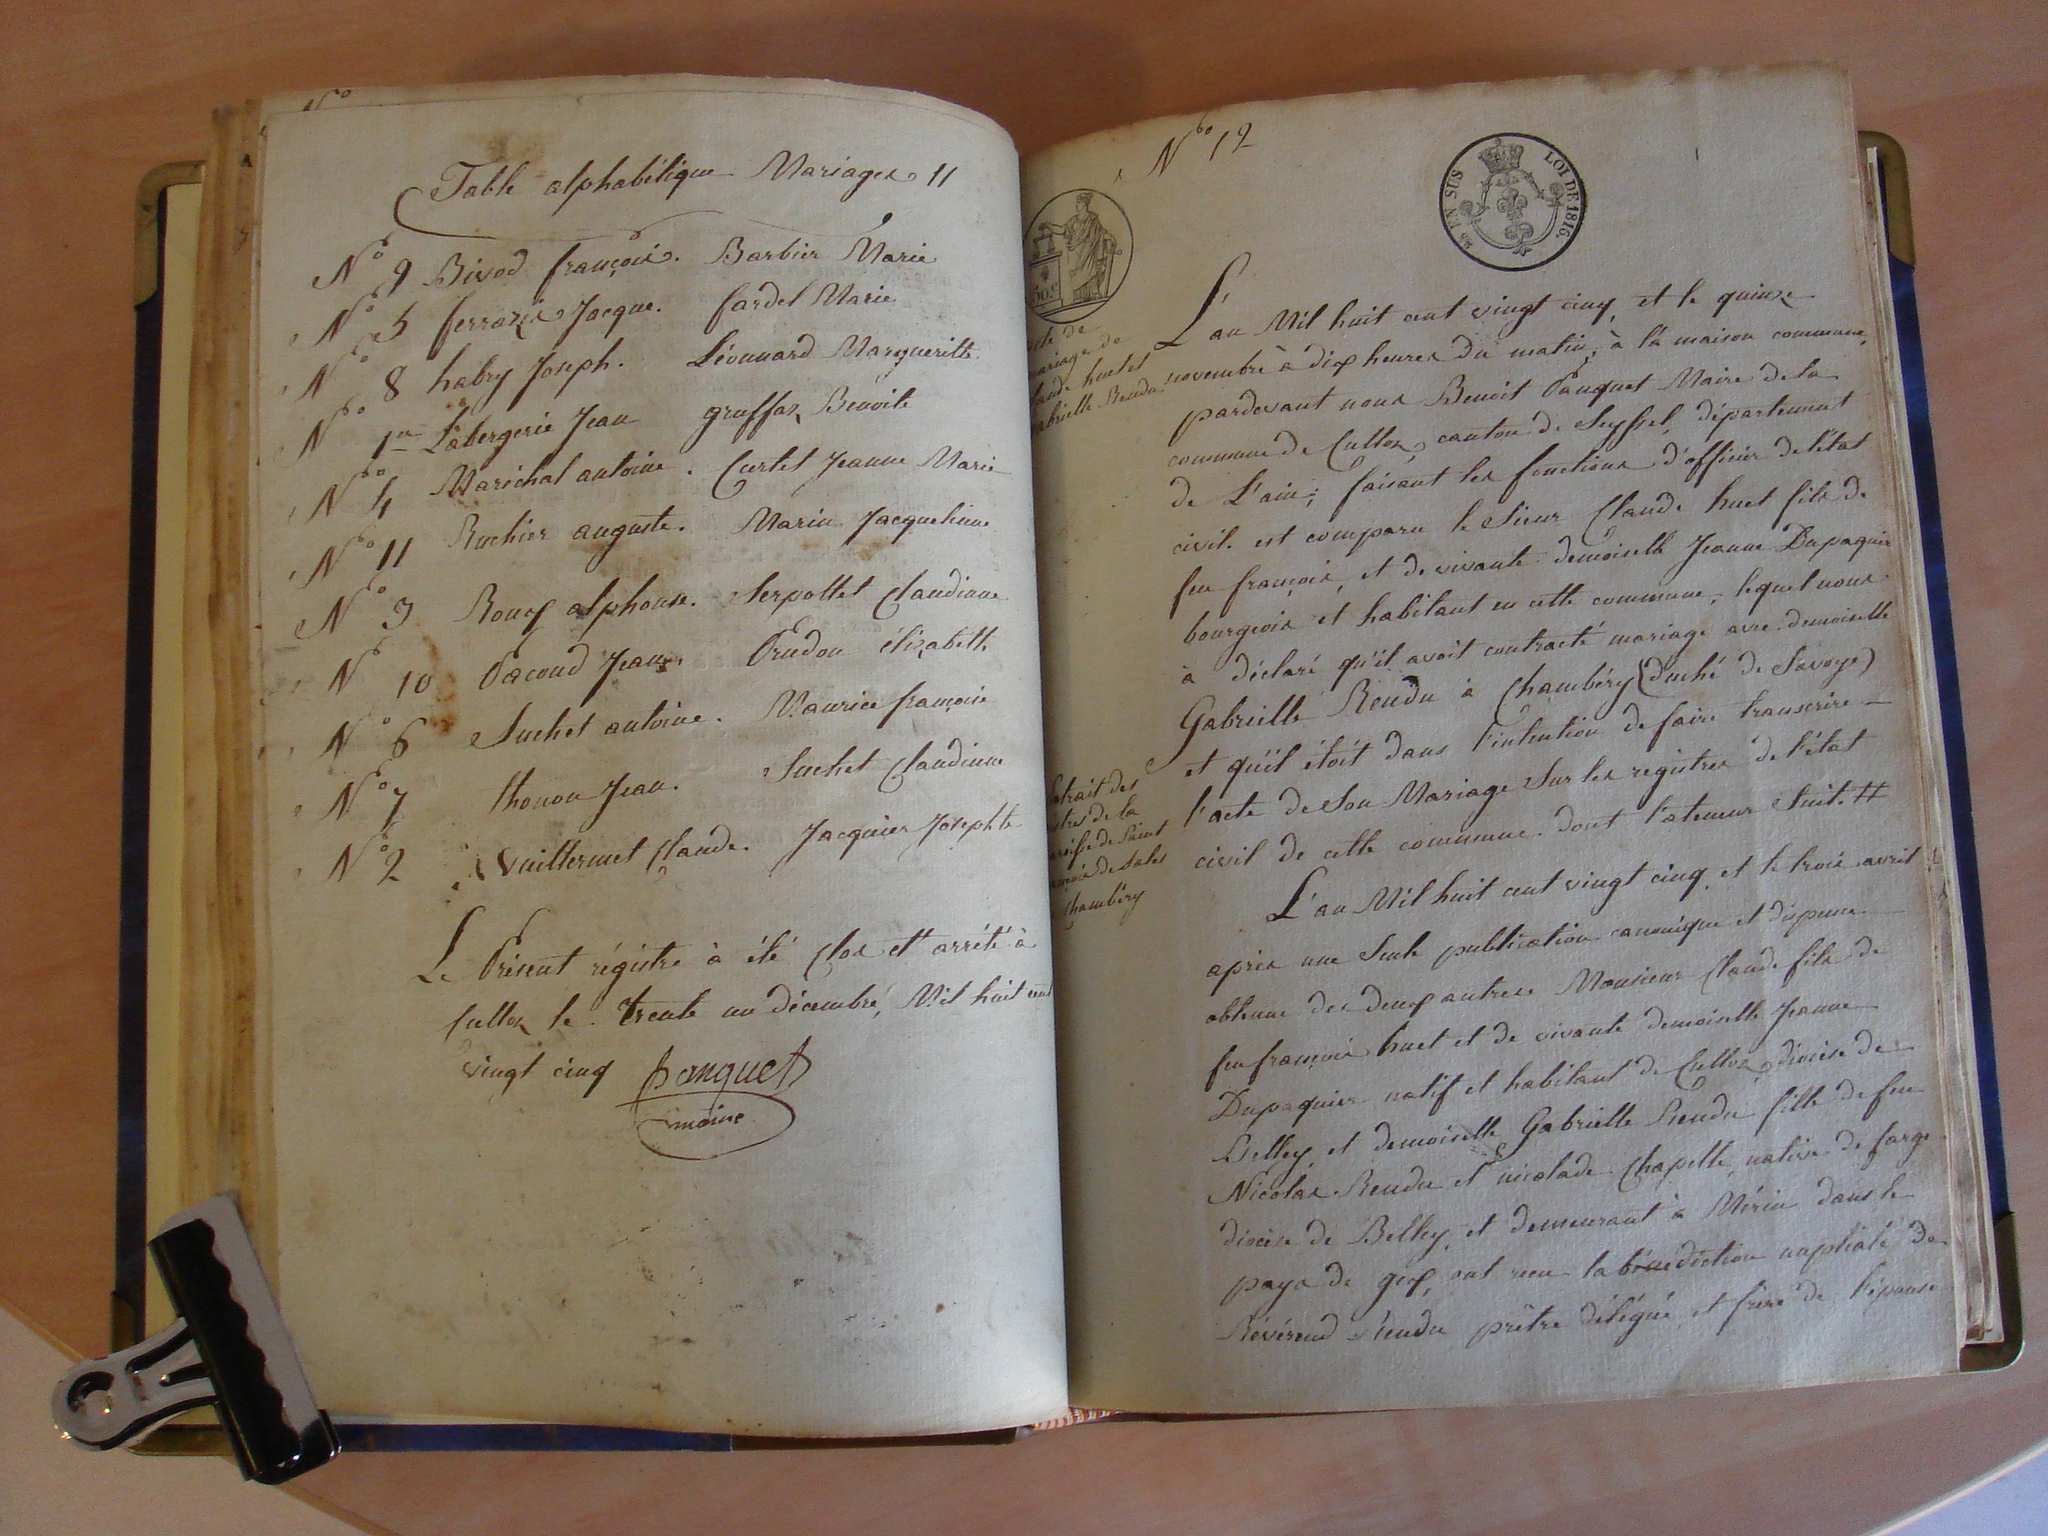 Nº
Table alphabétique Mariages 11
Nº 9 Bivod françois. Barbier Marie
Nº 5 ferrozis Jacque. fardel Marie
Nº 8 habry Joseph. Léonnard Marguerite
Nº 1er Labergerie Jean gruffaz Benoite
Nº 4 Maréchal antoine. Curtet Jeanne Marie
Nº 11 Ruchier auguste. Marin Jacqueline
Nº 3 Roux alphonse. Serpollet Claudinne
Nº 10 Pacoud Jean. Prudon élizabeth
Nº 6 Suchet antoine. Maurice françoise
Nº 7 thonon Jean. Suchet Claudinne
Nº 2 Vuillermet Claude. Jacquier Josephte
Le Présent régistre à été Clos et arrété à
Culloz le trente un décembre, Mil huit cent
vingt cinq Panquet
maire
Nº 12
EN SUS
LOI DE 1816.
50.c
acte de
mariage de
Claude huet et
gabrielle Rendu
L'an Mil huit cent vingt cinq, et le quinze
novembre à dix heures du matin, à la maison commune,
pardevant nous Benoit Panquet Maire de la
commune de Culloz, canton de Seyssel, département
de L'ain; faisant les fonctions d'officier de l'état
civil. est comparu le Sieur Claude huet fils de
feu françois, et de vivante demoiselle Jeanne Dupaquier
bourgeois et habitant en cette commune, lequel nous
à déclaré qu'il avoit contracté mariage avec demoiselle
Gabrielle Rendu à Chambéry (duché de Savoye)
et qu'il étoit dans l'intention de faire transcrire
l'acte de Son Mariage Sur les registres de l'état
civil de cette commune. dont lateneur Suit. //
Extrait des
registres de la
paroisse de Saint
françois de Sales
Chambéry
L'an Mil huit cent vingt cinq, et le trois avril
après une Seule publication canonique et dispense
obtenue des deux autres Monsieur Claude fils de
feu françois huet et de vivante demoiselle Jeanne
Dupaquier natif et habitant de Culloz, diocèse de
Belley, et demoiselle Gabrielle Rendu fille de feu
Nicolas Rendu et nicolade Chapelle, native de farge
diocèse de Belley, et demeurant à Mérin dans le
pays de gex, ont reçu la bénédiction nuptiale de
Révérend Rendu prêtre délégué et frère de l'épouse